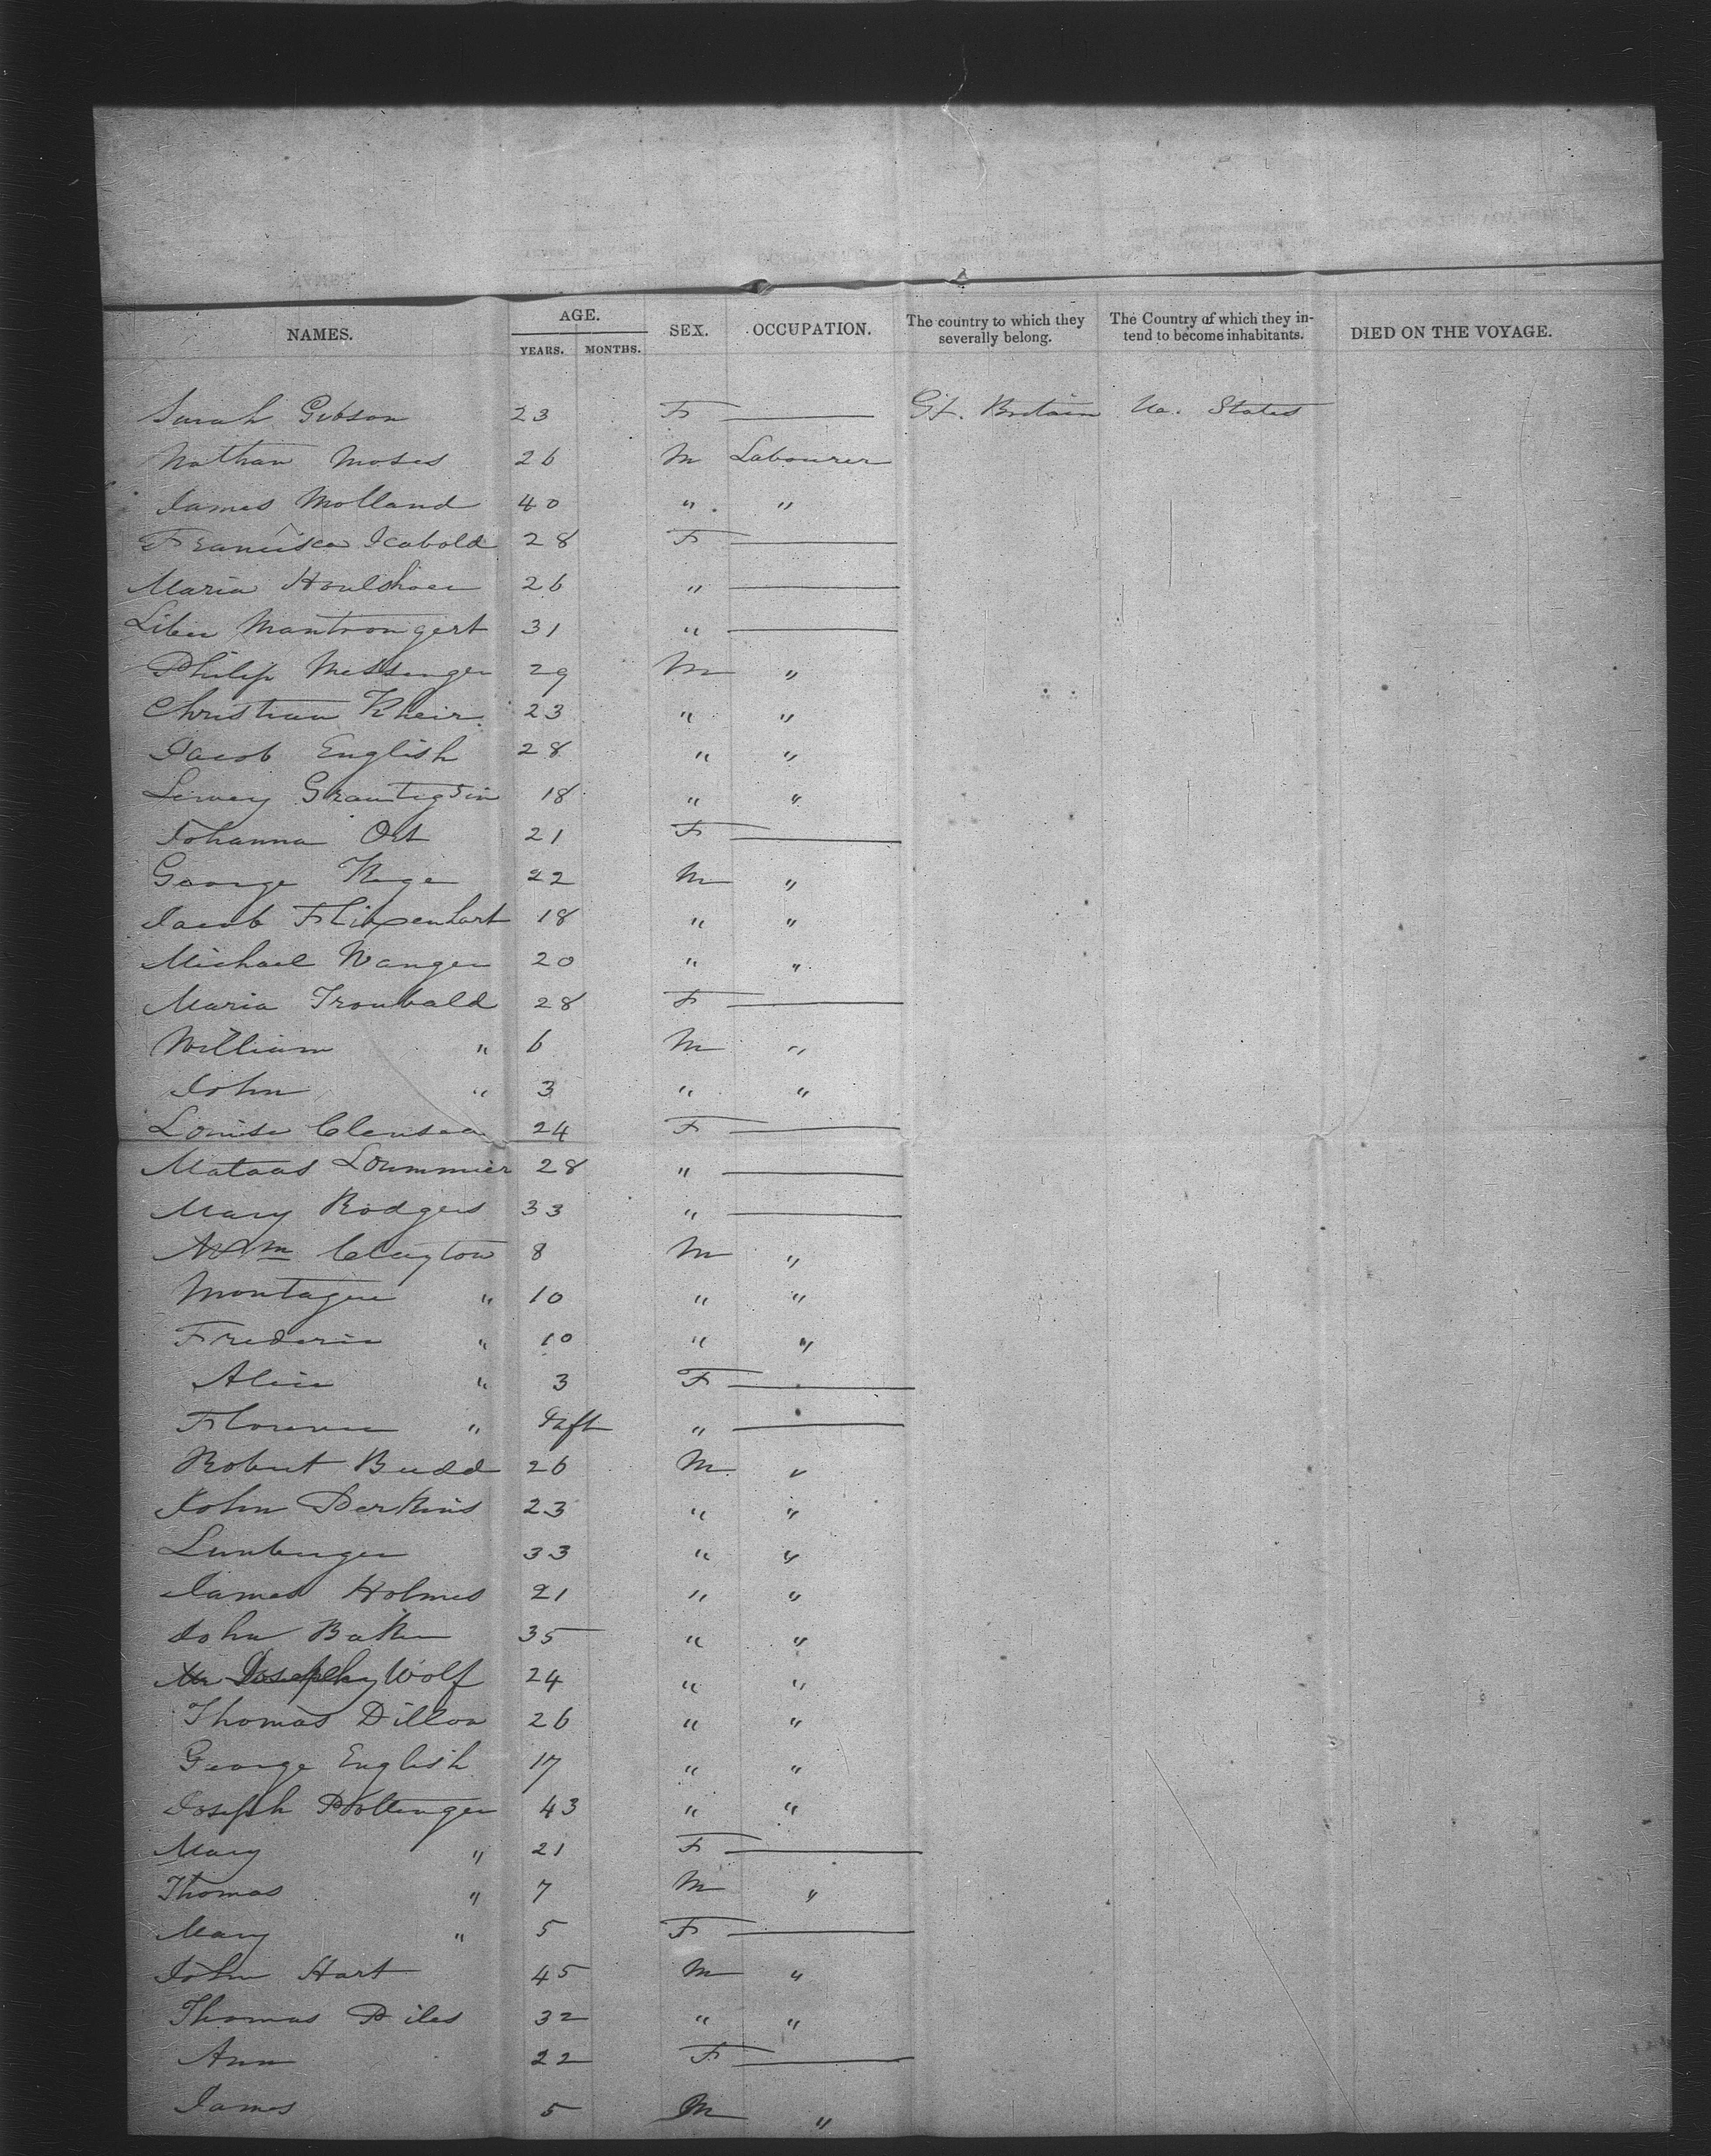 NAMES. AGE. YEARS. MONTHS. SEX. OCCUPATION. The country to which they severally belong. The Country of which they intend to become inhabitants. DIED ON THE VOYAGE.
Sarah Gibson 23 F —— Gt. Britain Un. States
Nathan Moses 26 M Labourer
James Molland 40 " "
Francisca Icabold 28 F ——
Maria 26 " ——
31 " ——
Philip Messenger 29 M "
Christian Kheir 23 " "
Jacob English 28 " "
18 " "
Johanna Ort 21 F ——
George Kuge 22 M "
Jacob 18 " "
Michael Wanger 20 " "
Maria Troubald 28 F ——
William " 6 M "
John " 3 " "
Louise 24 F ——
Mataas Lommier 28 " ——
Mary Rodgers 33 " ——
Wm Clayton 8 M "
Montague " 10 " "
Frederic " 10 " "
Alice " 3 F ——
Florence " Inft " ——
Robert Budd 26 M "
John Perkins 23 " "
Lunberger 33 " "
James Holmes 21 " "
John Baker 35 " "
Wolf 24 " "
Thomas Dillon 26 " "
George English 17 " "
Joseph Pottinger 43 " "
Mary " 21 F ——
Thomas " 7 M "
Mary " 5 F ——
John Hart 45 M "
Thomas Piles 32 " "
Ann 22 F ——
James 5 M "